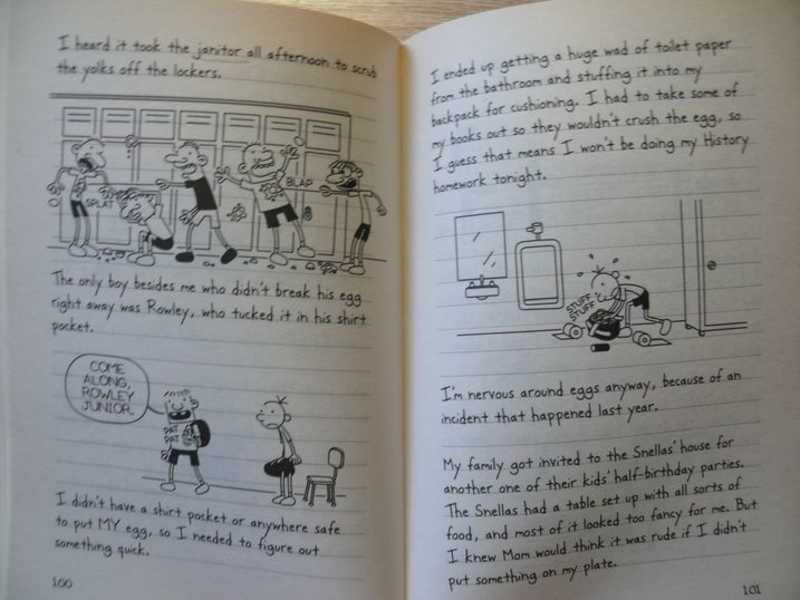 I heard it took the janitor all afternoon to scrub
the yolks off the lockers.
SPLAT
BLAP
The only boy besides me who didn't break his egg
right away was Rowley, who tucked it in his shirt
pocket.
COME
ALONG,
ROWLEY
JUNIOR.
PAT
PAT
I didn't have a shirt pocket or anywhere safe
to put MY egg, so I needed to figure out
something quick.
100
I ended up getting a huge wad of toilet paper
from the bathroom and stuffing it into my
backpack for cushioning. I had to take some of
my books out so they wouldn't crush the egg, so
I guess that means I won't be doing my History
homework tonight.
STUFF
STUFF
I'm nervous around eggs anyway, because of an
incident that happened last year.
My family got invited to the Snellas' house for
another one of their kids' half-birthday parties.
The Snellas had a table set up with all sorts of
food, and most of it looked too fancy for me. But
I knew Mom would think it was rude if I didn't
put something on my plate.
101